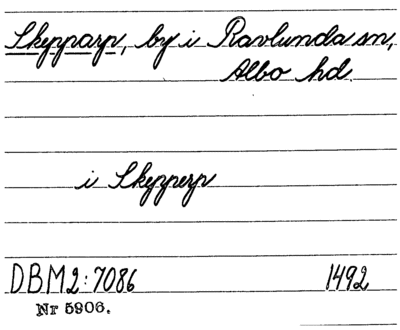 Skepparp, by i Ravlunda sn,
Albo hd.
i Skepperp
DBM2:7086 1492
Nr 5906.